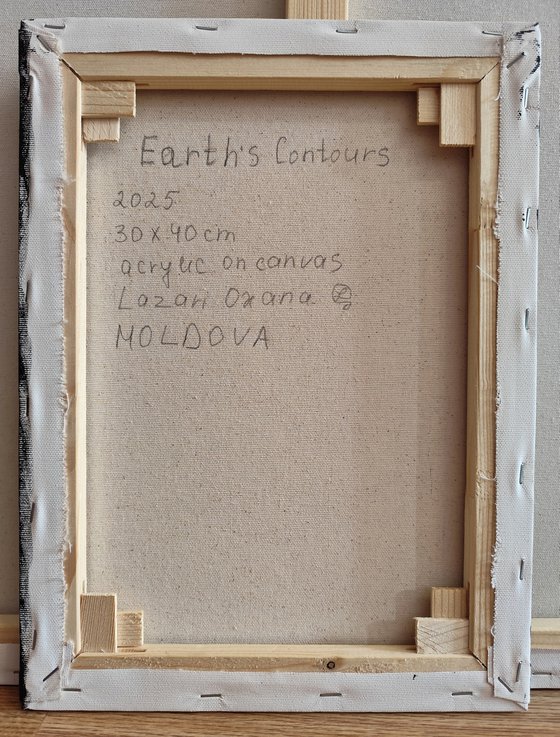 Earth's Contours
2025
30x40cm
acrylic on canvas
Lazari Oxana
MOLDOVA